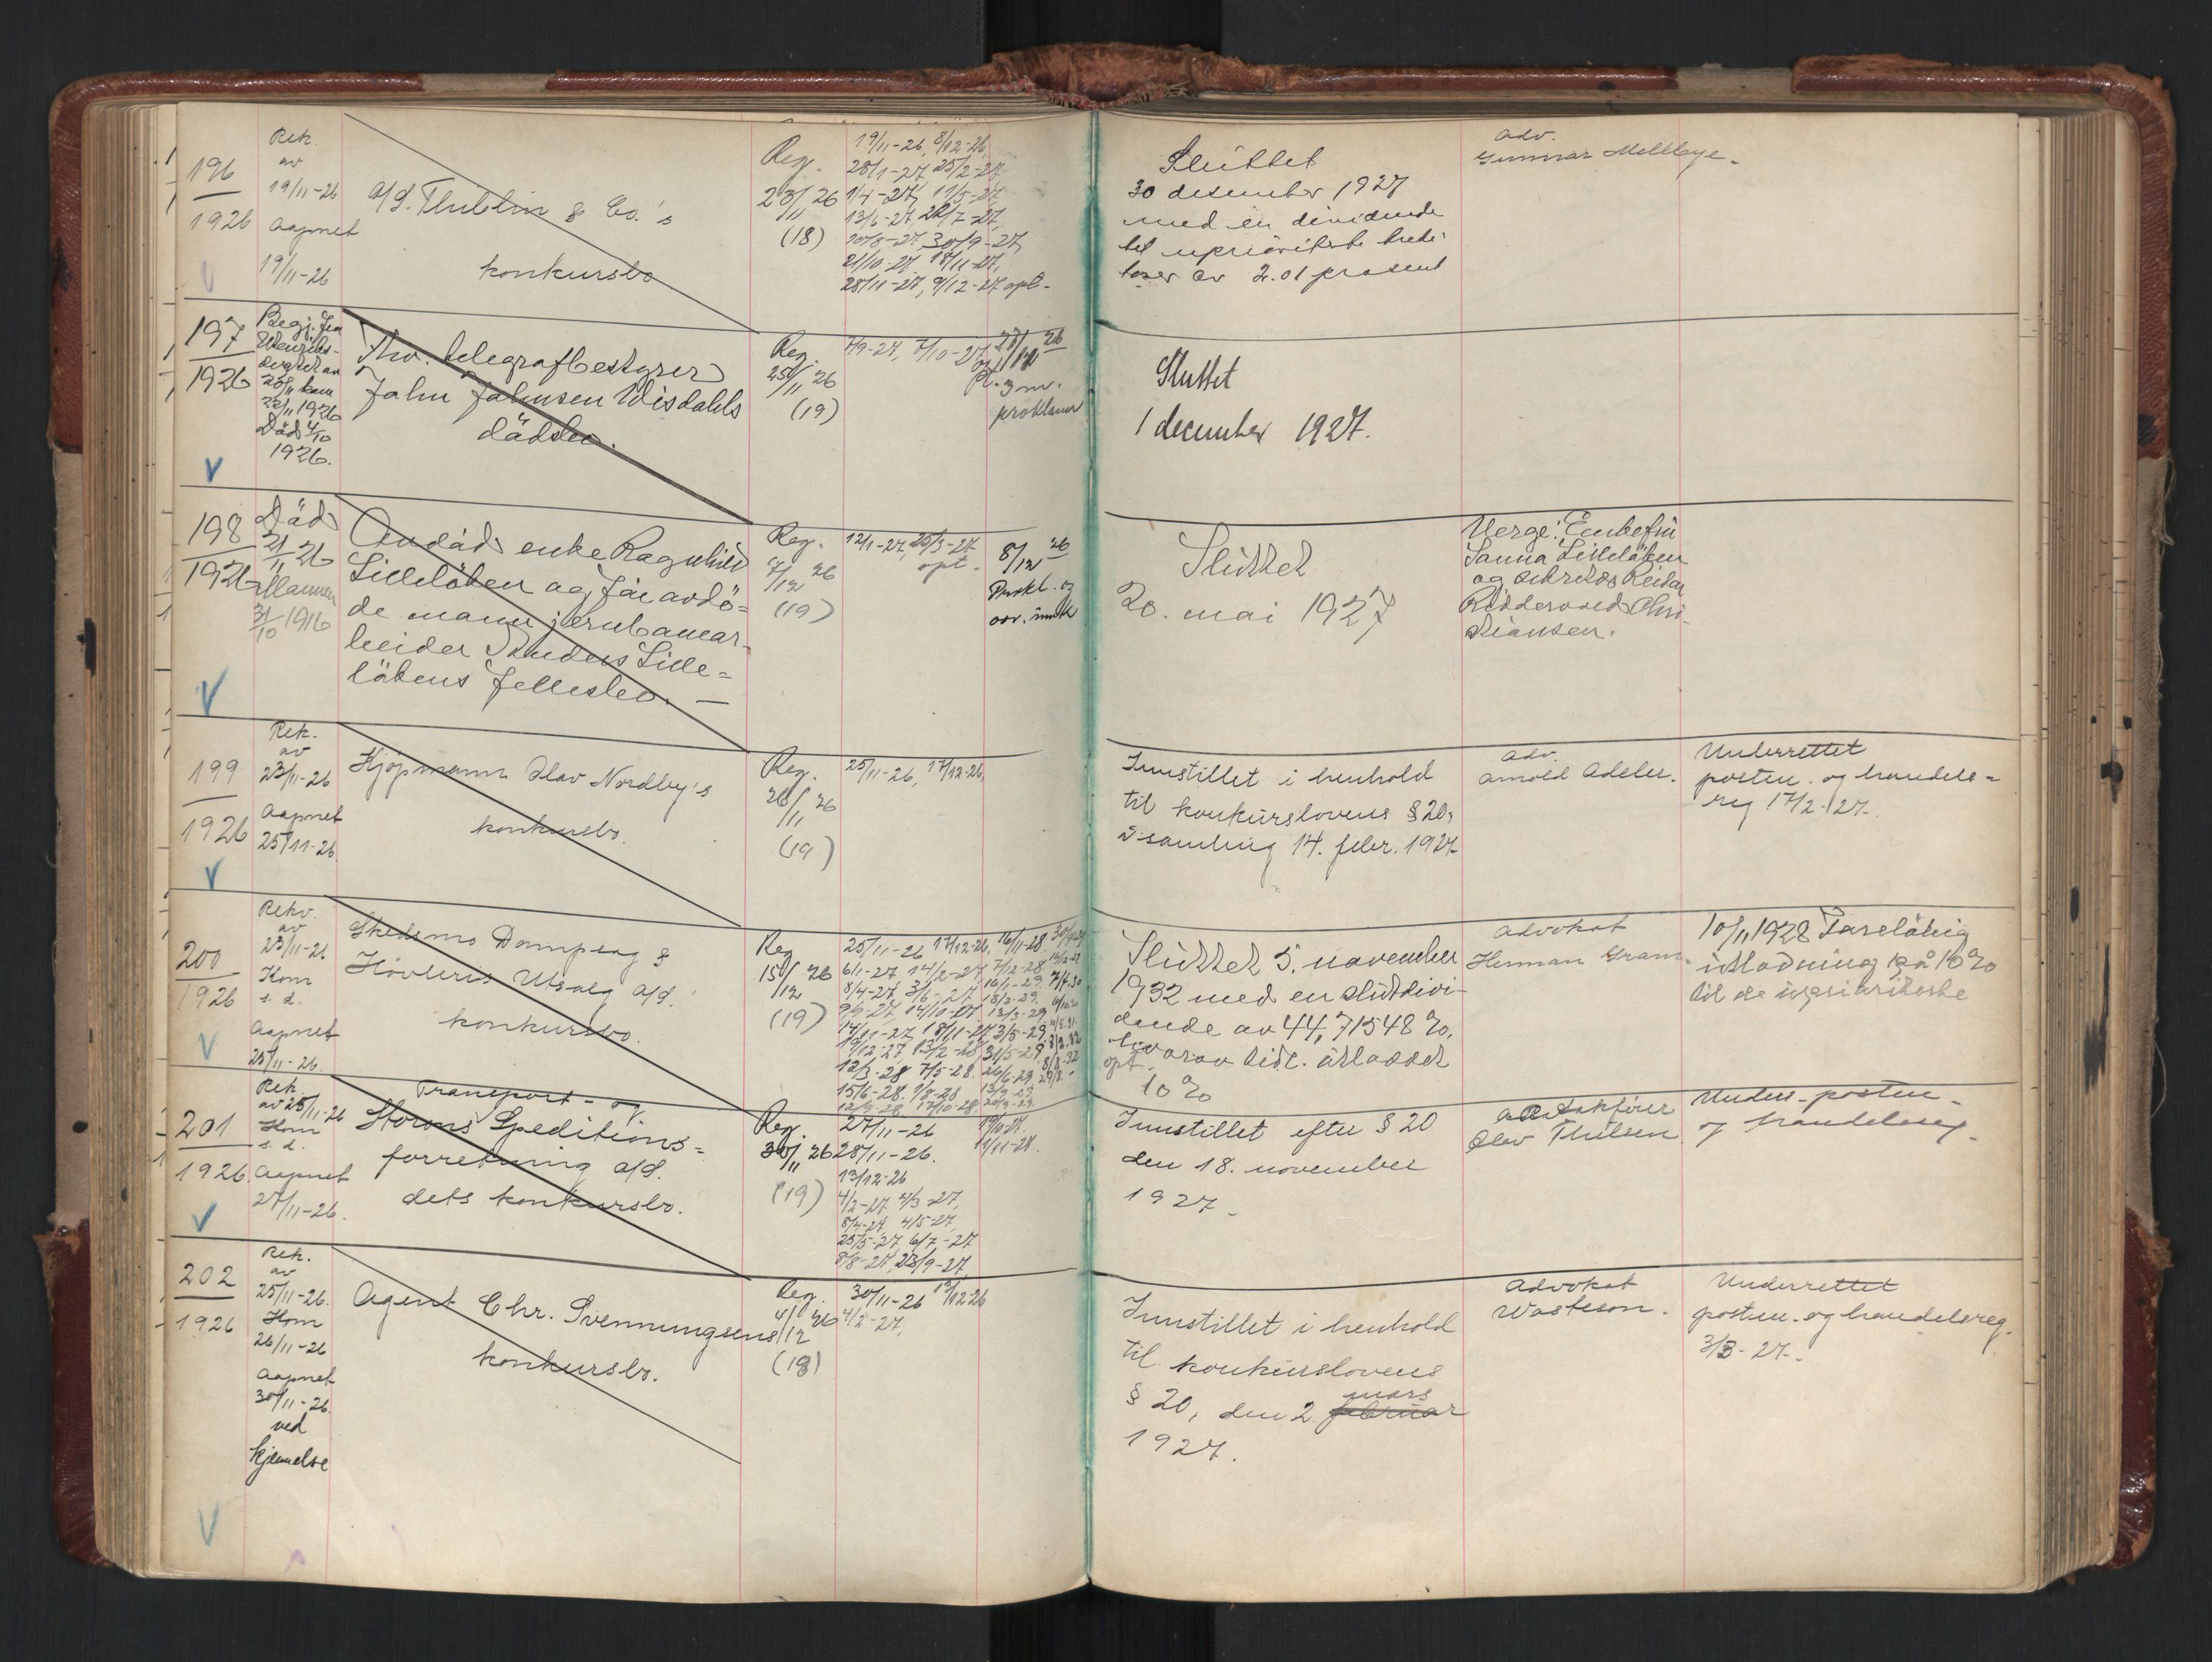 196
1926
Rek.
av
19/11-26
Aapnet
19/11-26
A/S. Thublin & Co.'s
konkursbo
Reg.
23/11 26
(18)
19/11-26, 8/12-26
28/1-27 25/2-27
1/4-27, 11/5-27
13/6-27, 22/7-27,
30/9-27,
21/10-27 18/11-27,
28/11-27, 9/12-27 opt-
Sluttet
30 desember 1927
med en dividende
til uprioriterte kredi-
torer av 2.01 prosent
Adv.
Gunnar Mellbye-
197
1926
Begj. fra
Utenriks-
dep.tet av
20/11 kom
22/11 1926
Död 4/10
1926.
Fhv. telegrafbestyrer
Jahn Jahnsen Wisdahls
dödsbo.
Reg.
25/11 26
(19)
7/9-27, 7/10-27
27/11 26
3 mr.
proklama
Sluttet
1 december 1927.
198
1926
Död
21/11 26
Mannen
31/10 1916
Avdöd enke Ragnhild
Lilleløken og før avdö-
de mann jernbanear-
beider Anders Lille-
lökens fellesbo. -
Reg.
7/12 26
(19)
12/1-27, 25/3-27
opt.
8/12 26
Prokl. og
arv. innk
Sluttet
20. mai 1927
Verge: Enkefru
Sanna Lilleløken
og sekretær Reidar
Riddervold Chri-
stiansen.
199
1926
Rek.
av
23/11-26
Aapnet
25/11-26.
Kjøpmann Olav Nordby's
konkursbo.
Reg.
26/11 26
(19)
25/11-26, 17/12-26,
Innstillet i henhold
til konkurslovens § 20,
samling 14. febr. 1927
Adv.
Arnold Adeler.
Underrettet
postm. og handels-
reg 17/2-27.
200
1926
Rekv.
av
23/11-26
Kom
s. d.
Aapnet
25/11-26.
Skedsmo Dampsag &
Høvleris Utsalg A/S.
konkursbo.
Reg
15/12 26
(19)
25/11-26 17/12-26, 16/11-28.
6/1-27 14/2-27 7/12-28
8/4-27, 3/6-27 18/2-29.
9/9-27, 14/10-27 13/3-29
14/11-27, 18/11-27 3/5-29
19/12-27, 13/2-28 31/5-29
12/3-28 7/5-28. 26/6-29
15/6-28. 1/8-28
12/9-28 17/10-28.
Sluttet 5. november
1932 med en slutdivi-
dende av 44,71548 %.
hvorav tidl. utloddet
opt.
10 %
Advokat
Herman Gram-
10/11 1928 Foreløbig
utlodning på 10 %
til de uprioriterte
201
1926.
Rek.
av 25/11-26
Kom
s. d.
Aapnet
27/11-26.
Transport- og
Storms Speditions-
forretning A/S.
dets konkursbo.
Reg.
30/11 26
(19)
27/11-26
28/11-26.
13/12-26
4/2-27 4/3-27,
8/4-27, 4/5-27,
25/5-27, 6/7-27
8/8-27, 23/9-27
Innstillet efter § 20
den 18. november
1927.
Olav Thulsen
Underr. postm.-
og handelsreg.
202
1926
Rek.
av
25/11-26.
Kom
26/11-26
Aapnet
30/11-26.
ved
kjennelse
Agent Chr. Svenningsens
konkursbo.
Reg.
4/12 26
(18)
30/11-26 13/12-26
4/2-27,
Innstillet i henhold
til konkurslovens
mars
§ 20, den 2. februar
1927.
Advokat
Wasteson.
Underrettet
postm. og handelsreg.
3/3-27.